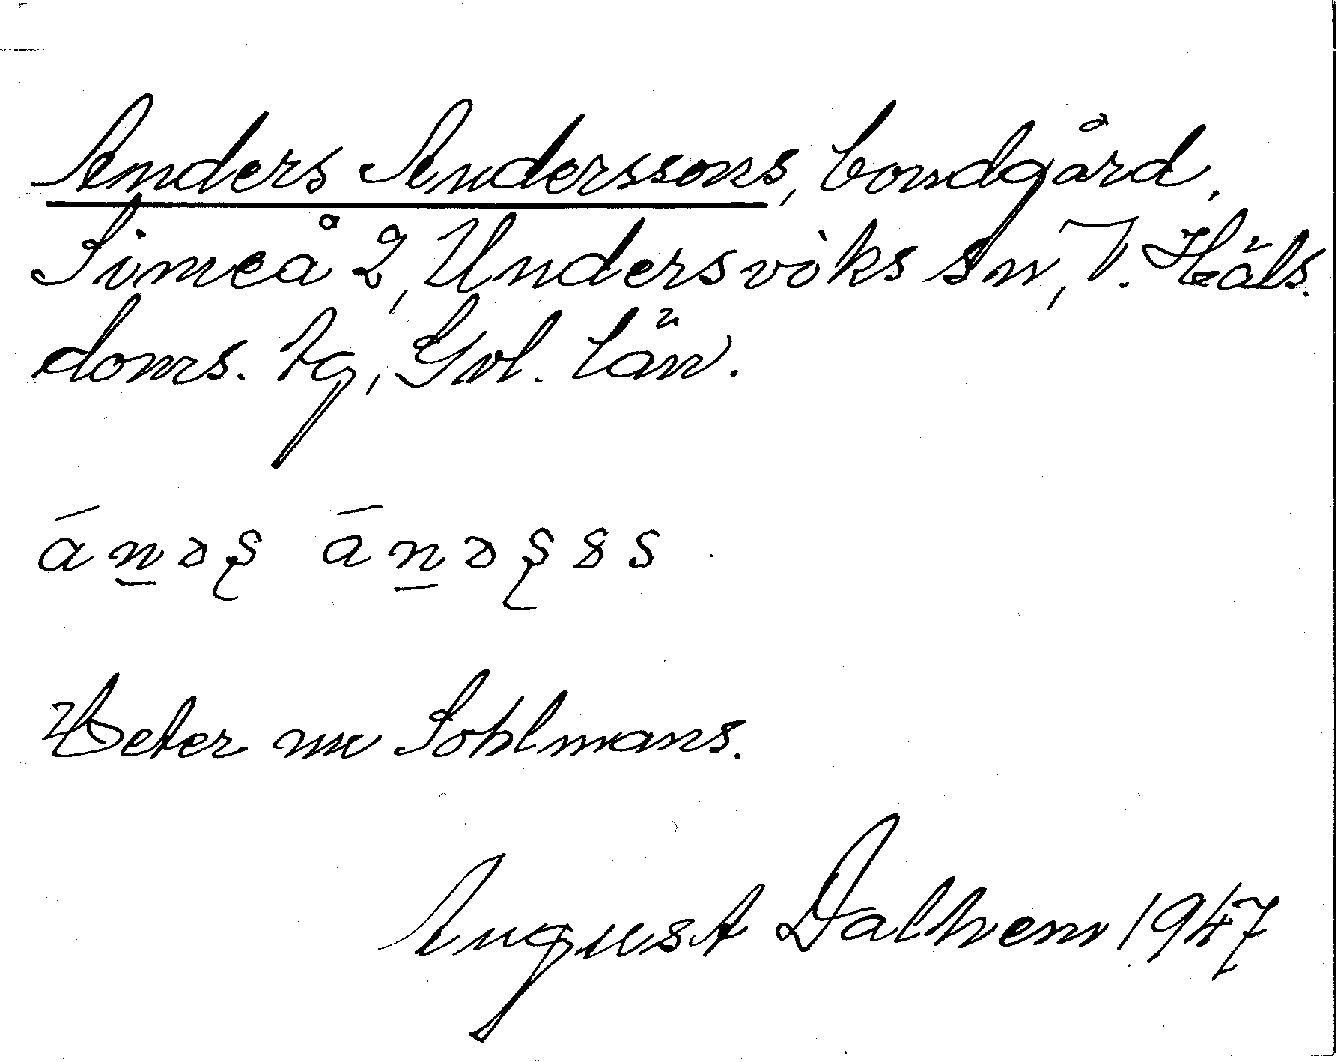 Anders Anderssons, bondgård.
Simeå 2, Undersviks sn, V. Häls.
doms. tg, Gvl. län.
Heter nu Sohlmans.
August Dalhem 1947